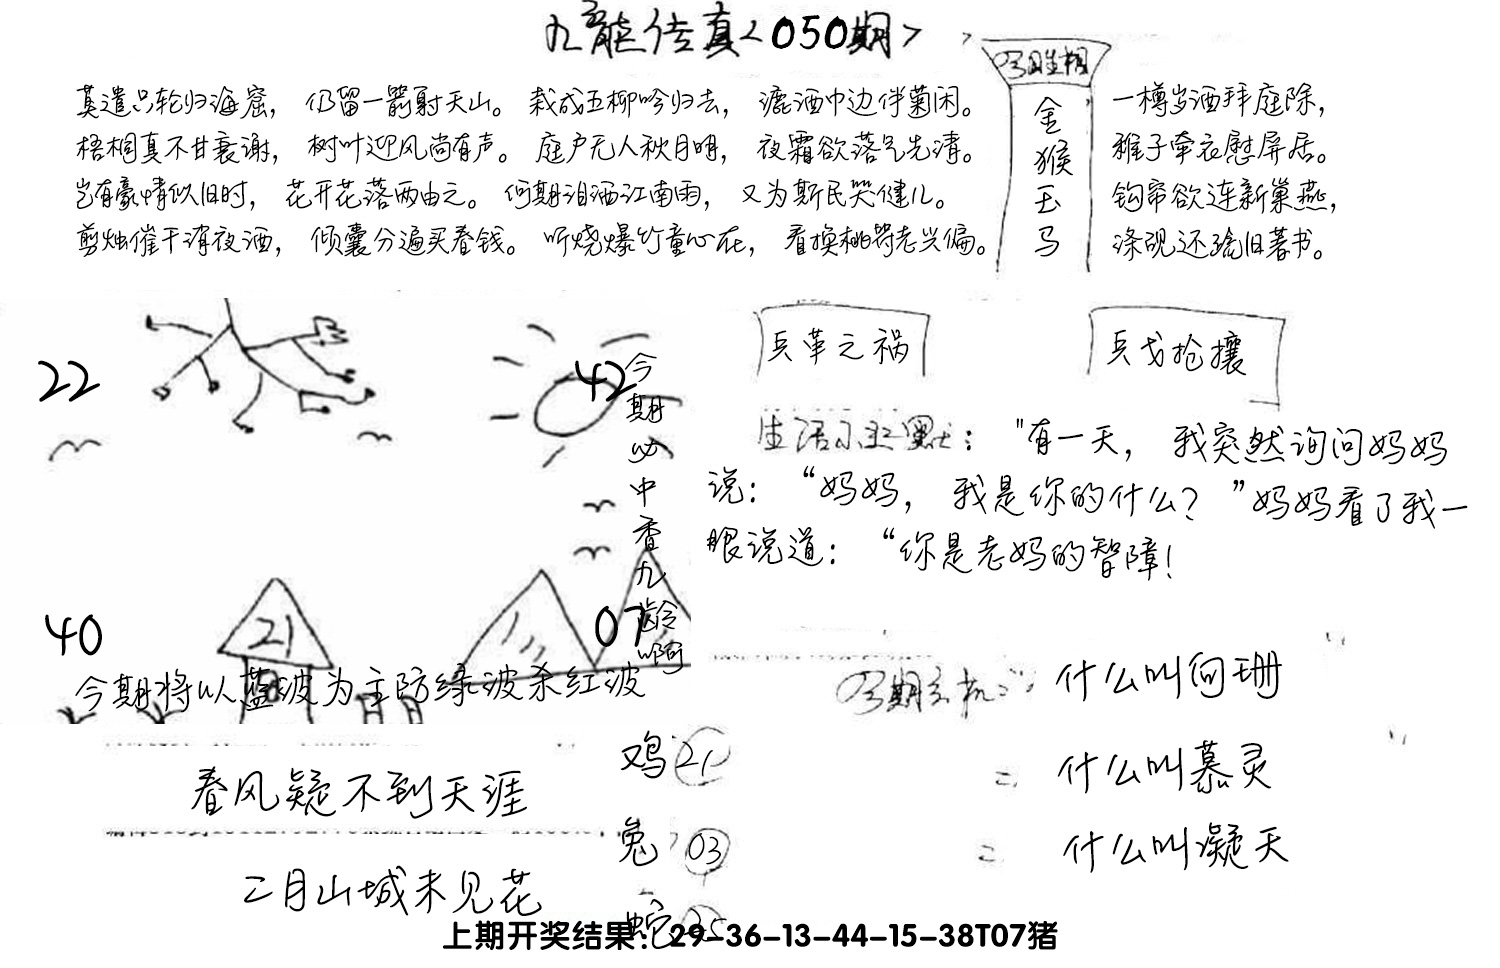 九龙传真<050期>
莫遣只轮归海窟，仍留一箭射天山。栽成五柳吟归去，漉酒巾边伴菊闲。
梧桐真不甘衰谢，树叶迎风尚有声。庭户无人秋月明，夜霜欲落气先清。
岂有豪情似旧时，花开花落两由之。何期泪洒江南雨，又为斯民哭健儿。
剪烛催干消夜酒，倾囊分遍买春钱。听烧爆竹童心在，看换桃符老兴偏。
金
猴
玉
马
一樽岁酒拜庭除，
稚子牵衣慰屏居。
钩帘欲连新巢燕，
涤砚还疏旧著书。
22
42
40
21
07
今期必中香九龄啊
今期将以蓝波为主防绿波杀红波
兵革之祸
兵戈抢攘
生活小幽默："有一天，我突然询问妈妈
说：“妈妈，我是你的什么？”妈妈看了我一
眼说道：“你是老妈的智障！
什么叫向珊
什么叫慕灵
什么叫凝天
春风疑不到天涯
二月山城未见花
鸡21
兔03
蛇25
上期开奖结果：29-36-13-44-15-38T07猪